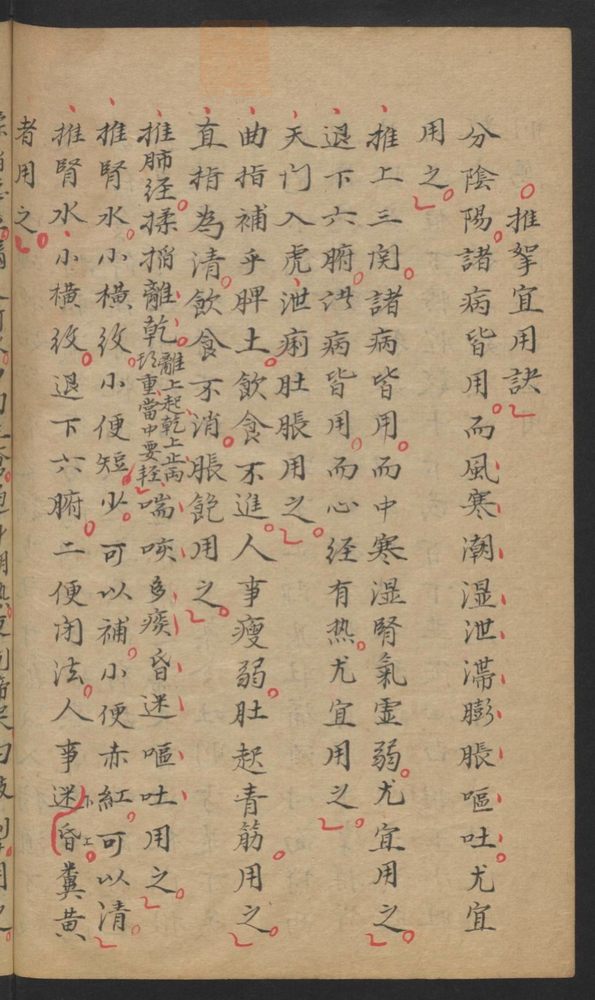 推拏宜用訣
分陰陽諸病皆用而風寒潮湿泄滯膨脹嘔吐尤宜
用之
推上三関諸病皆用而中寒湿腎氣虚弱尤宜用之
退下六腑諸病皆用而心经有热尤宜用之
天门入虎泄痢肚脹用之
曲指補乎脾土飲食不進人事瘦弱肚起青筋用之
直指為清飲食不消脹飽用之
推肺经揉掐離乾離上起乾上止両
重當中要轻喘咳多痰昏迷嘔吐用之
推腎水小横纹小便短少可以補小便赤紅可以清
推腎水小横纹退下六腑二便闭法人事迷昏糞黄
者用之